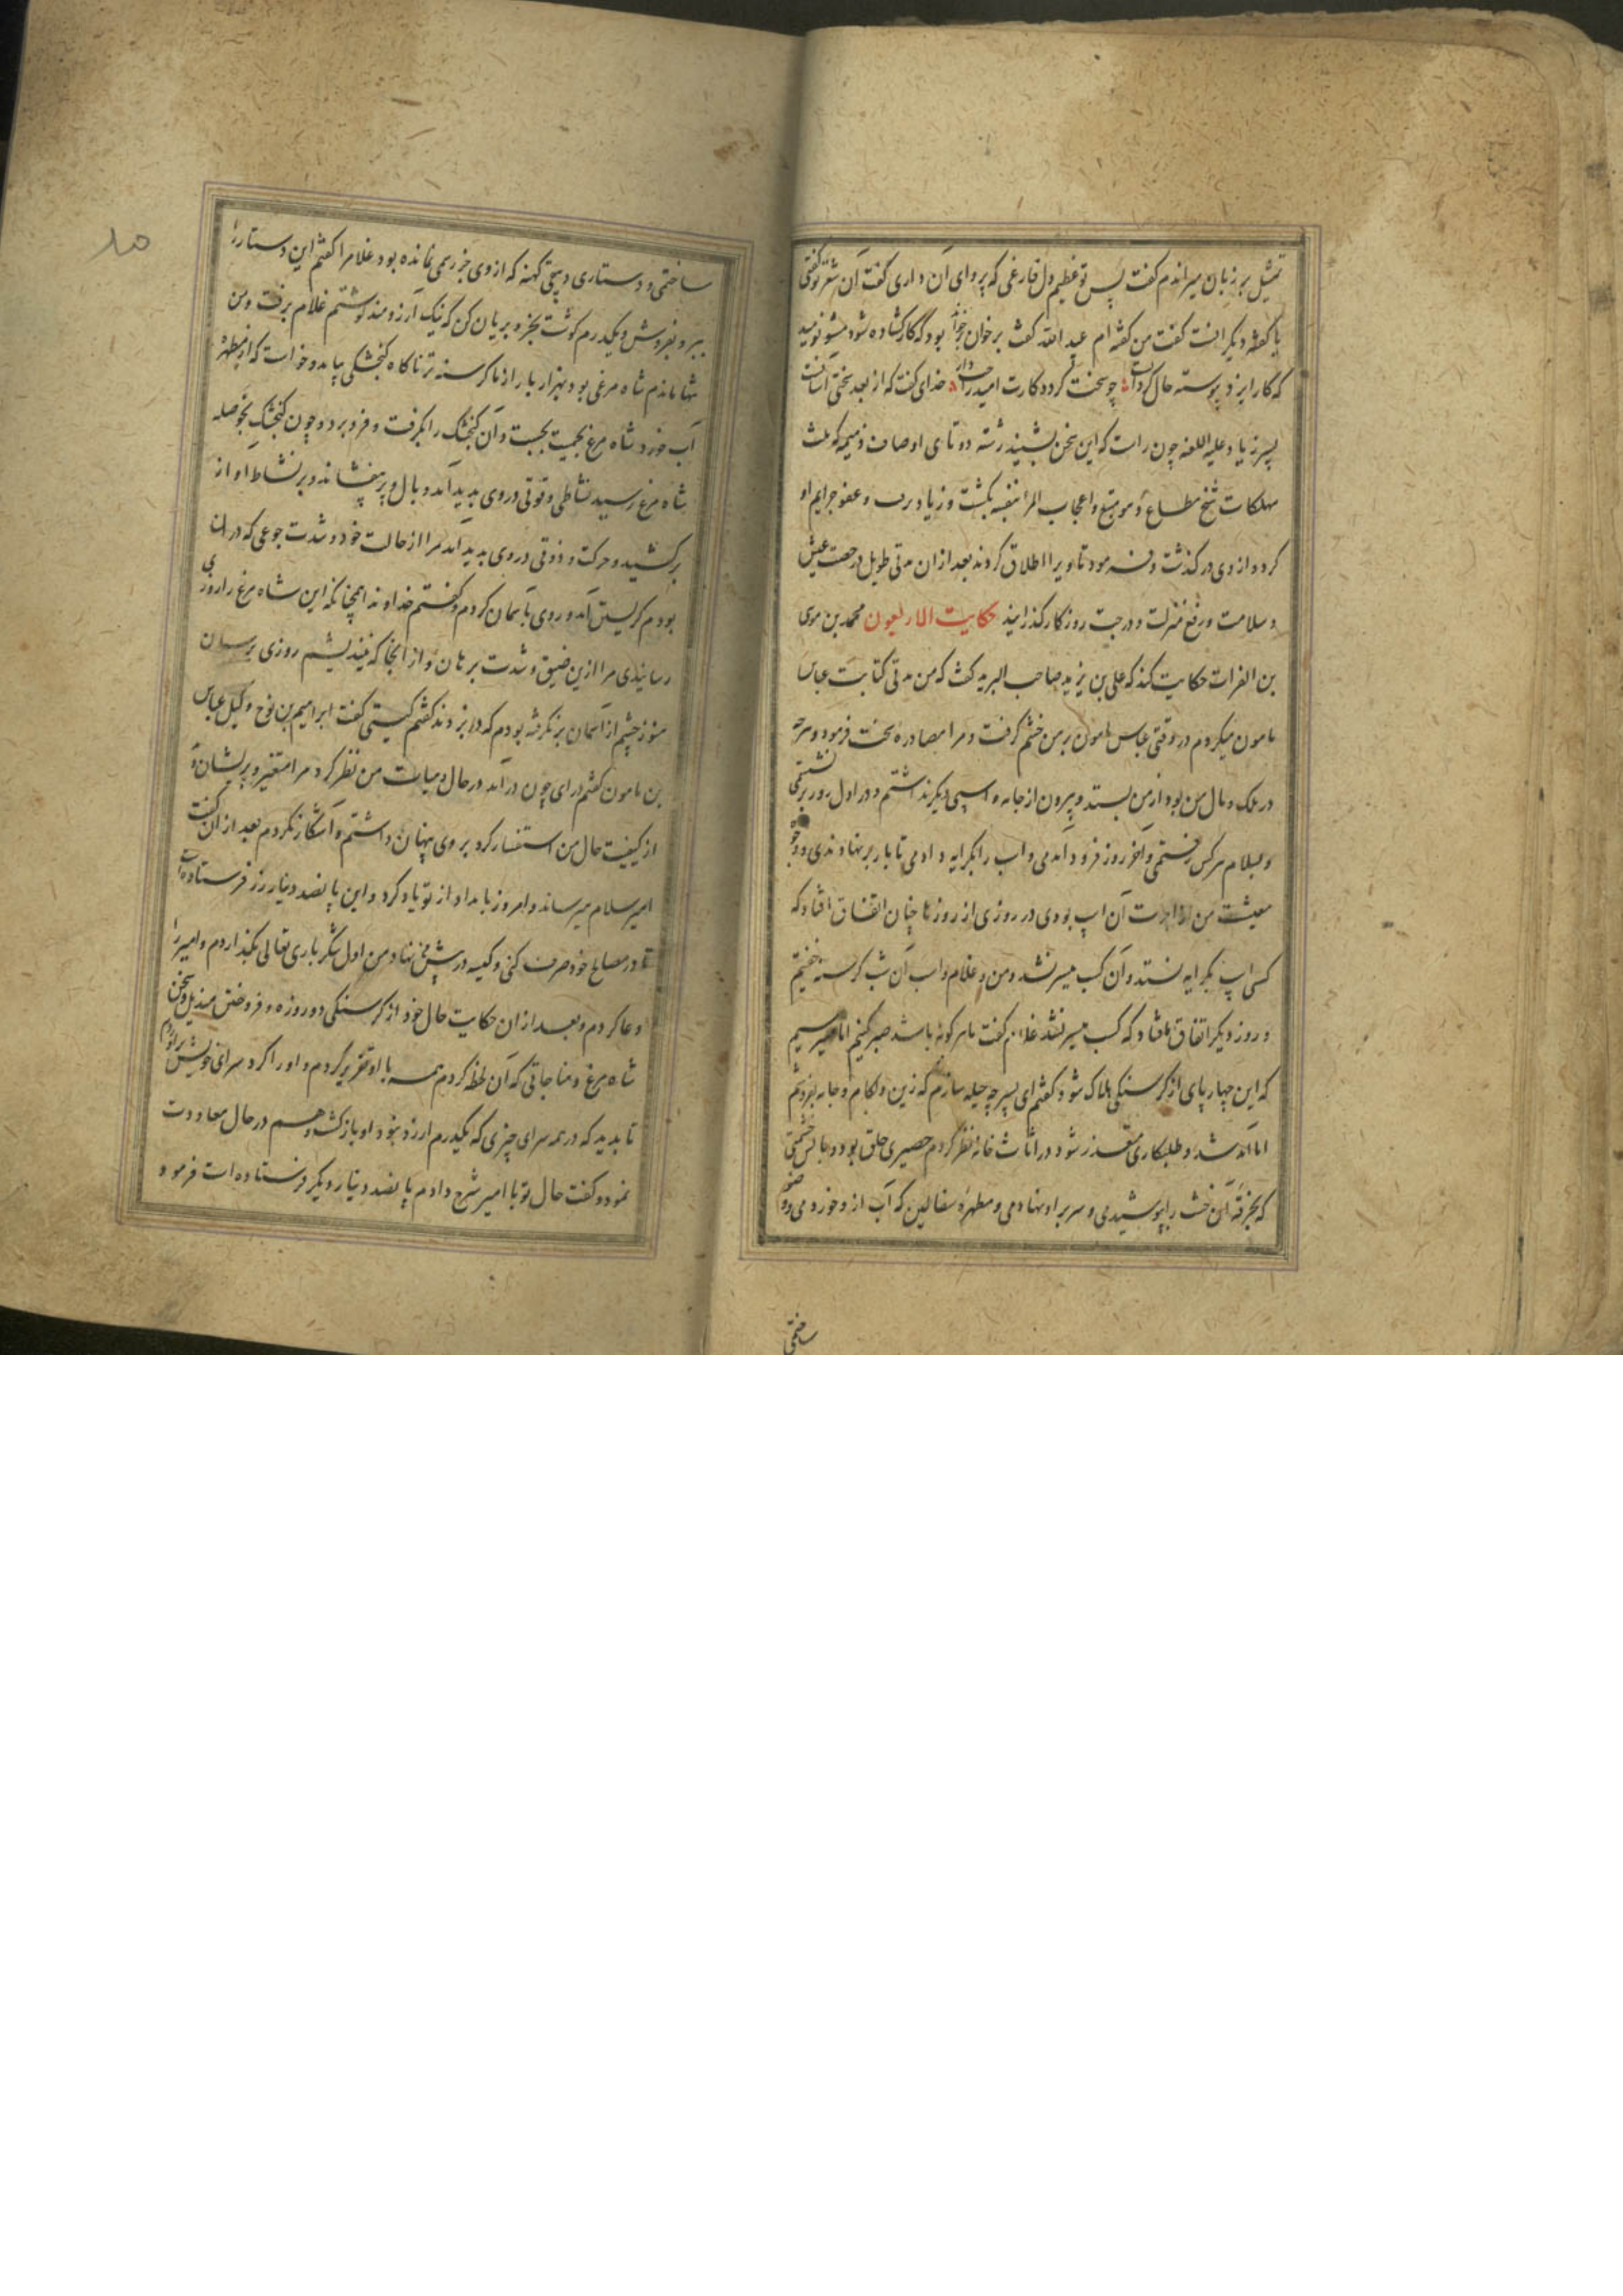 تمثیل بر زبان میراندم کفت پس تو عظیم دل فارغی که پروای آن داری کفت آن شعر تو کفتی
یا کفته دیکرانست کفت من کفته ام عبد الله کفت برخوان بود که کار کشاده شود مشو نومید
که کار ایزد پیوسته حال کردانست چو سخت کردد کارت امید خدای کفت که از بعد سختی آسانست
پسر زیاد علیه اللعنه چون راست که این سخن بشنید رشته دوتای اوصاف ذمیمه که ثلث
مهلکات شح مطاع و هو متبع و اعجاب المرء بنفسه بکشت و زیاد برب و عفو جرایم او
کرد و از وی در کذشت و فرمود تا ویرا اطلاق کردند بعد از ان مدتی طویل در خصب عیش
و سلامت و رفع منزلت و درجت روزکار کذرانید حکایت الاربعون محمد بن موسی
بن الفرات حکایت کند که علی بن یزید صاحب البرید کفت که من مدتی کتابت عباس
مامون میکردم در وقتی عباس مامون بر من خشم کرفت و مرا مصادره سخت فرمود و هرچه
در ملک و مال من بود از من بستد و بیرون از جامه و اسپی دیکر نداشتم و در اول روز برنشستمی
و بسلام هرکس رفتمی و آخر روز فرود آمدمی و اسب را بکرایه دادمی تا بار برنهادندی و وجوه
معیشت من از اجرت آن اسپ بودی در روزی از روزها چنان اتفاق افتاد که
کسی اسپ بکرایه نستد و آن کسب میسر نشد و من و غلام و اسب آن شب کرسنه خفتیم
و روز دیکر اتفاق افتاد که کسب میسر نشد غلامم کفت ما هر کونه باشد صبر کنیم اما میترسیم
که این چهارپای از کرسنکی هلاک شود کفتم ای پسر چه حیله سازم که زین و لکام و جامه بفروشم
اما آمد شد و طلبکاری متعذر شود در اثاث خانه نظر کردم حصیری خلق بود و بالش خشتی
که بخرقه آن خشت را پوشیدمی و سر بر او نهادمی و مطهره سفالین که آب از و خوردمی و وضو
ساختمی
ساختمی و دستاری دیبقی کهنه که از وی جز رسمی نمانده بود غلامرا کفتم این دستار را
ببر و بفروش و یکدرم کوشت بخر و بریان کن که نیک آرزومند کوشتم غلام برفت و من
تنها ماندم شاه مرغی بود بهزار بار از ما کرسنه تر ناکاه کنجشکی بیامد و خواست که از مطهره
آب خورد شاه مرغ بجمیت بجست و آن کنجشک را بکرفت و فرو برد و چون کنجشک بحوصله
شاه مرغ رسید نشاطی و قوتی در وی بدید آمد و بال و پر بیفشاند و بر نشاط آواز
برکشید و حرکت و ذوقی در وی بدید آمد مرا از حالت خود و شدت جوعی که در ان
بودم کریستن آمد و روی بآسمان کردم و کفتم خداوندا همچنانکه این شاه مرغ را روزی
رسانیدی مرا ازین ضیق و شدت برهان و از آنجا که نیندیشم روزی برسان
هنوز چشم از آسمان برنکرفته بودم که در بزدند کفتم کیستی کفت ابراهیم بن نوح وکیل عباس
بن مامون کفتم درای چون درآمد در حال و هیات من نظر کرد مرا متغیر و پریشان دید
از کیفیت حال من استفسار کرد بر وی پنهان داشتم و آشکار نکردم بعد از ان کفت
امیر سلام میرساند و امروز بامداد از تو یاد کرد و این پانصد دینار زر فرستاده است
تا در مصالح خود صرف کنی و کیسه در پیش من نهاد و من اول شکر باری تعالی بکذاردم و امیر را
دعا کردم و بعد از ان حکایت حال خود از کرسنکی دو روزه و فروختن مندیل و سخن
شاه مرغ و مناجاتی که آن لحظه کردم همه با او تقریر کردم و او را کرد سرای خویش برآوردم
تا بدید که در همه سرای چیزی که یکدرم ارزد نبود او بازکشت و هم در حال معاودت
نمود و کفت حال تو با امیر شرح دادم پانصد دینار دیکر فرستاده است فرمود